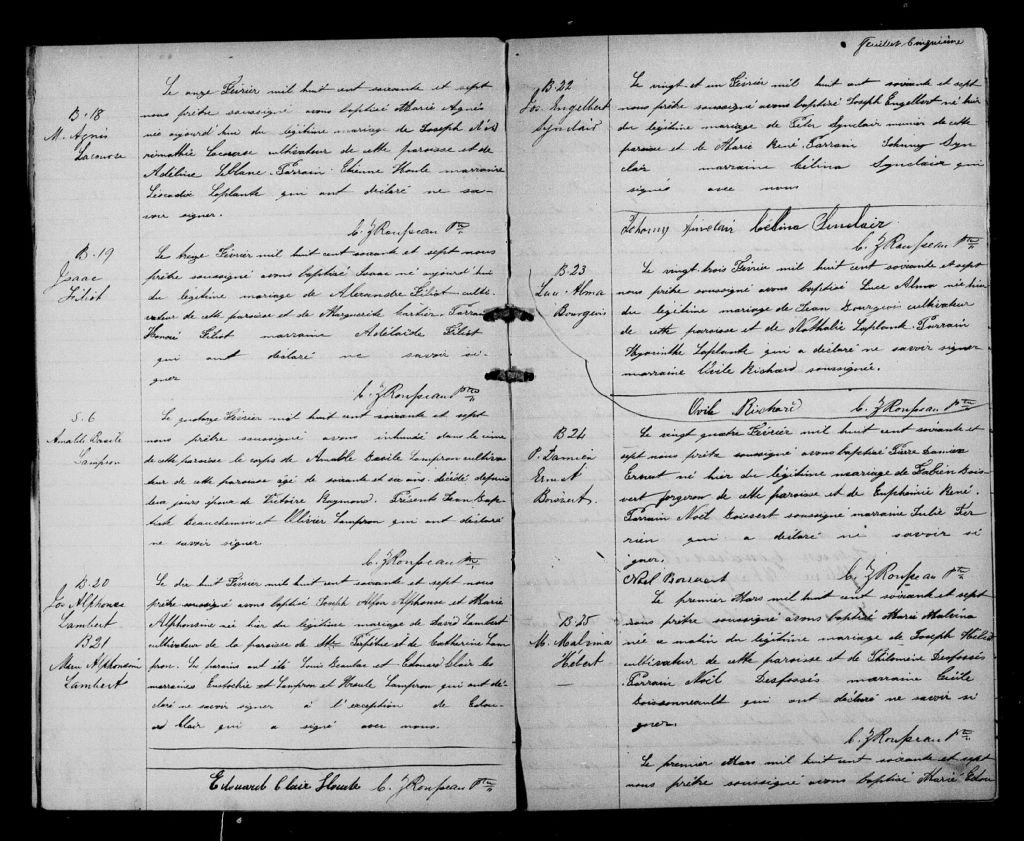 B.18
M. Agnès
Lacourse
Le onze Février mil huit cent soixante et sept
nous prêtre soussigné avons baptisé Marie Agnès
née aujourd'hui du légitime mariage de Joseph
Lacourse cultivateur de cette paroisse et de
Adéline Leblanc. Parrain Etienne Houle marraine
Léocadie Laplante qui ont déclaré ne sa-
voir signer.
C. Z Rousseau Ptre
B.19
Isaac
Filiot
Le treize Février mil huit cent soixante et sept nous
prêtre soussigné avons baptisé Isaac né aujourd'hui
du légitime mariage de Alexandre Filiot culti-
vateur de cette paroisse et de Marguerite Cartier. Parrain
Honoré Filiot marraine Adélaïde Filiot
qui ont déclaré ne savoir si-
gner
C. Z Rousseau Ptre
S.6
Amable Basile
Lampron
Le quatorze Février mil huit cent soixante et sept
nous prêtre soussigné avons inhumé dans le cime
de cette paroisse le corps de Amable Basile Lampron cultiva
teur de cette paroisse agé de soixante et ans. décédé depuis
deux jours époux de Victoire Raymond. Présents Jean Bap-
tiste Beauchemin et Olivier Lampron qui ont déclaré
ne savoir signer
C. Z Rousseau Ptre
B.20
Jos Alphonse
Lambert
B21
Marie Alphonsine
Lambert
Le dix huit Février mil huit cent soixante et sept nous
prêtre soussigné avons baptisé Joseph Alphonse et Marie
Alphonsine nés hier du légitime mariage de David Lambert
cultivateur de la paroisse de Ste Perpétue et de Catherine Lam
pron. Les parrains ont été Louis Beaulac et Edouard Clair les
marraines Eustochie Lampron et Houle Lampron qui ont dé-
claré ne savoir signer à l'exception de Edou-
ard Clair qui a signé avec nous.
Edouard Clair C. Z Rousseau Ptre
Feuillet Cinquième
B.22
Jos. Engelbert
Synclair
Le vingt et un Février mil huit cent soixante et sept
nous prêtre soussigné avons baptisé Joseph Engelbert né hier
du légitime mariage de Peter Synclair de cette
paroisse et de Marie René. Parrain Johnny Syn
clair marraine Célina Synclair qui
signé avec nous
Johnny Sinclair Célina Sinclair
C. Z Rousseau Ptre
B.23
Luce Alma
Bourgeois
Le vingt-trois Février mil huit cent soixante et sept
nous prêtre soussigné avons baptisé Luce Alma née hier
du légitime mariage de Jean Bourgeois cultivateur
de cette paroisse et de Nathalie Laplante. Parrain
Hyacinthe Laplante qui a déclaré ne savoir signer
marraine Cécile Richard soussignée.
Richard C. Z Rousseau Ptre
B24
P. Damien
Ernest
Boisvert.
Le vingt quatre Février mil huit cent soixante et
sept nous prêtre soussigné avons baptisé Pierre Damien
Ernest né hier du légitime mariage de Fabien Bois
vert forgeron de cette paroisse et de Euphémie René.
Parrain Noël Boisvert soussigné marraine Julie
rien qui a déclaré ne savoir si
gner.
Noel Boisvert C. Z Rousseau Ptre
B.25
M. Malvina
Hébert
Le premier Mars mil huit cent soixante et sept
nous prêtre soussigné avons baptisé Marie Malvina
née ce matin du légitime mariage de Joseph Hébert
cultivateur de cette paroisse et de Philomène Desfossés
Parrain Noël Desfossés marraine Cécile
Boissonneault qui ont déclaré ne savoir si
gner.
C. Z Rousseau Ptre
Le premier Mars mil huit cent soixante et sept
nous prêtre soussigné avons baptisé Marie Edou